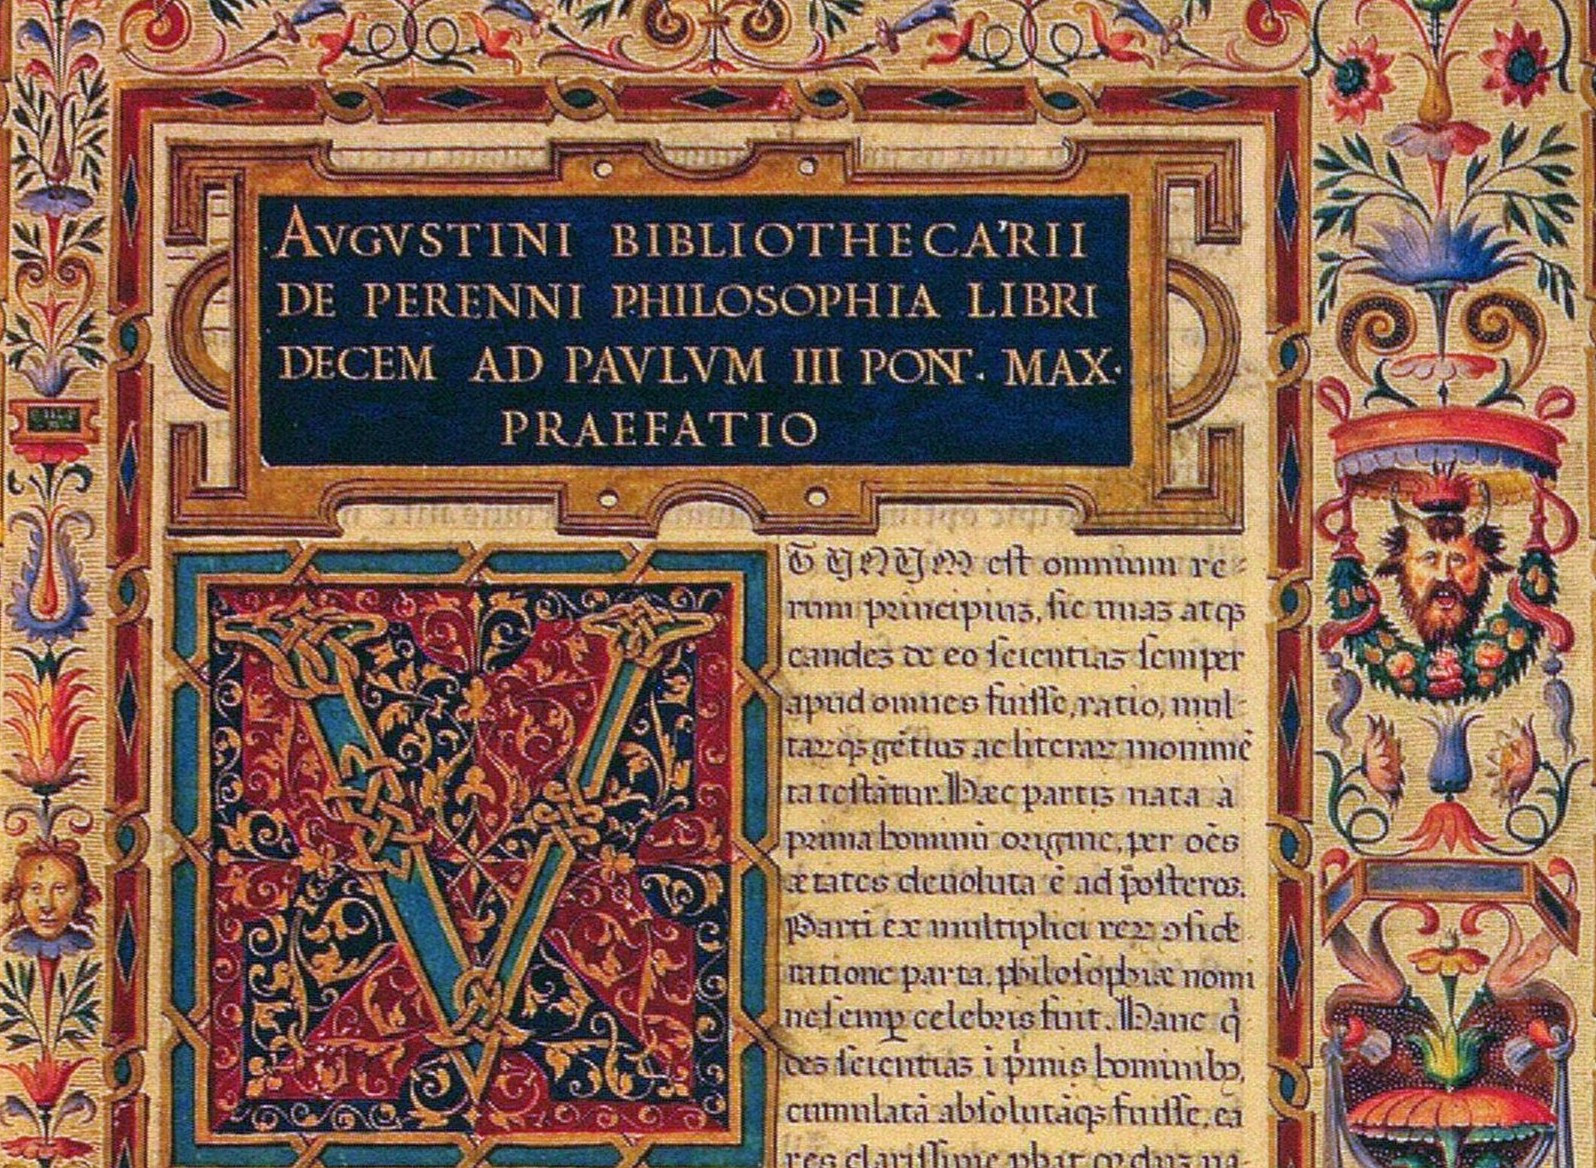 AVGVSTINI BIBLIOTHECARII
DE PERENNI PHILOSOPHIA LIBRI
DECEM AD PAVLVM III PONT. MAX.
PRAEFATIO
VT VNVM est omnium re-
rum principiuʒ, sic unaʒ atqʒ
eandeʒ de eo scientiaʒ semper
apud omnes fuisse, ratio, mul-
taꝝqʒ gẽtiuʒ ac literaꝝ monimẽ
ta testãtur. Hæc partiʒ nata à
prima hominũ origine, per oẽs
ætates deuoluta ẽ ad p̃osteros.
Parti ex multiplici reꝝ ↄside
ratione parta, philosophiæ nomi
ne semꝑ celebris fuit. Hanc q̃
oẽs scientias i p̃mis hominibꝰ,
cumulatã absolutãqʒ fuisse, ea